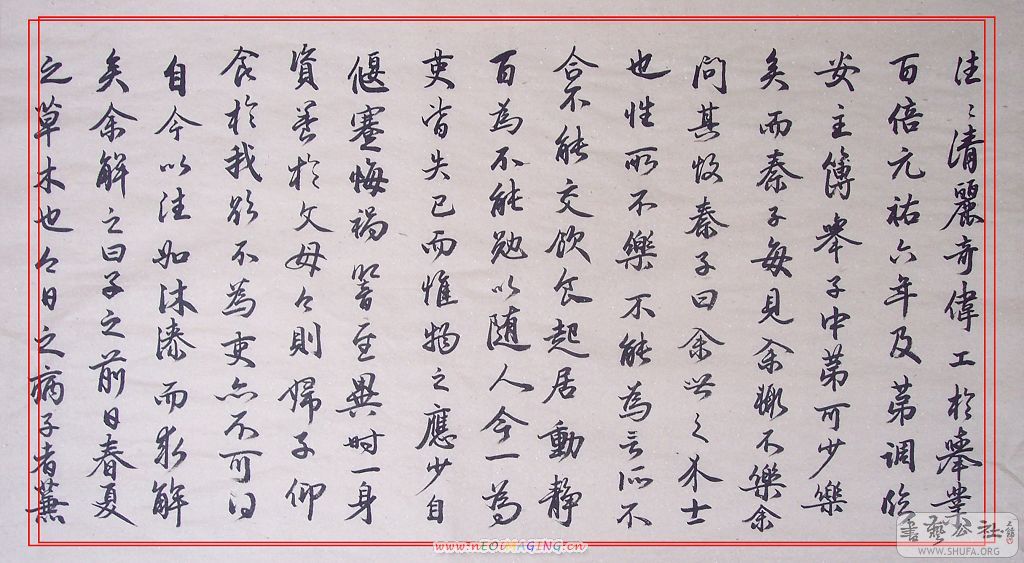 往〻清麗奇偉工於舉業
百倍元祐六年及第調臨
安主簿舉子中第可少樂
矣而秦子每見余輒不樂余
問其故秦子曰余世之介士
也性所不樂不能為言所不
合不能交飲食起居動靜
百為不能勉以随人今一為
吏皆失已而惟物之應少自
偃蹇悔禍響至異時一身
資養於父母今則婦子仰
食於我欲不為吏亦不可得
自今以往如沐漆而求解
矣余解之曰子之前日春夏
之草木也今日之病子者蒹
書藝公社
WWW.SHUFA.ORG
www.nEOiMAGING.cn